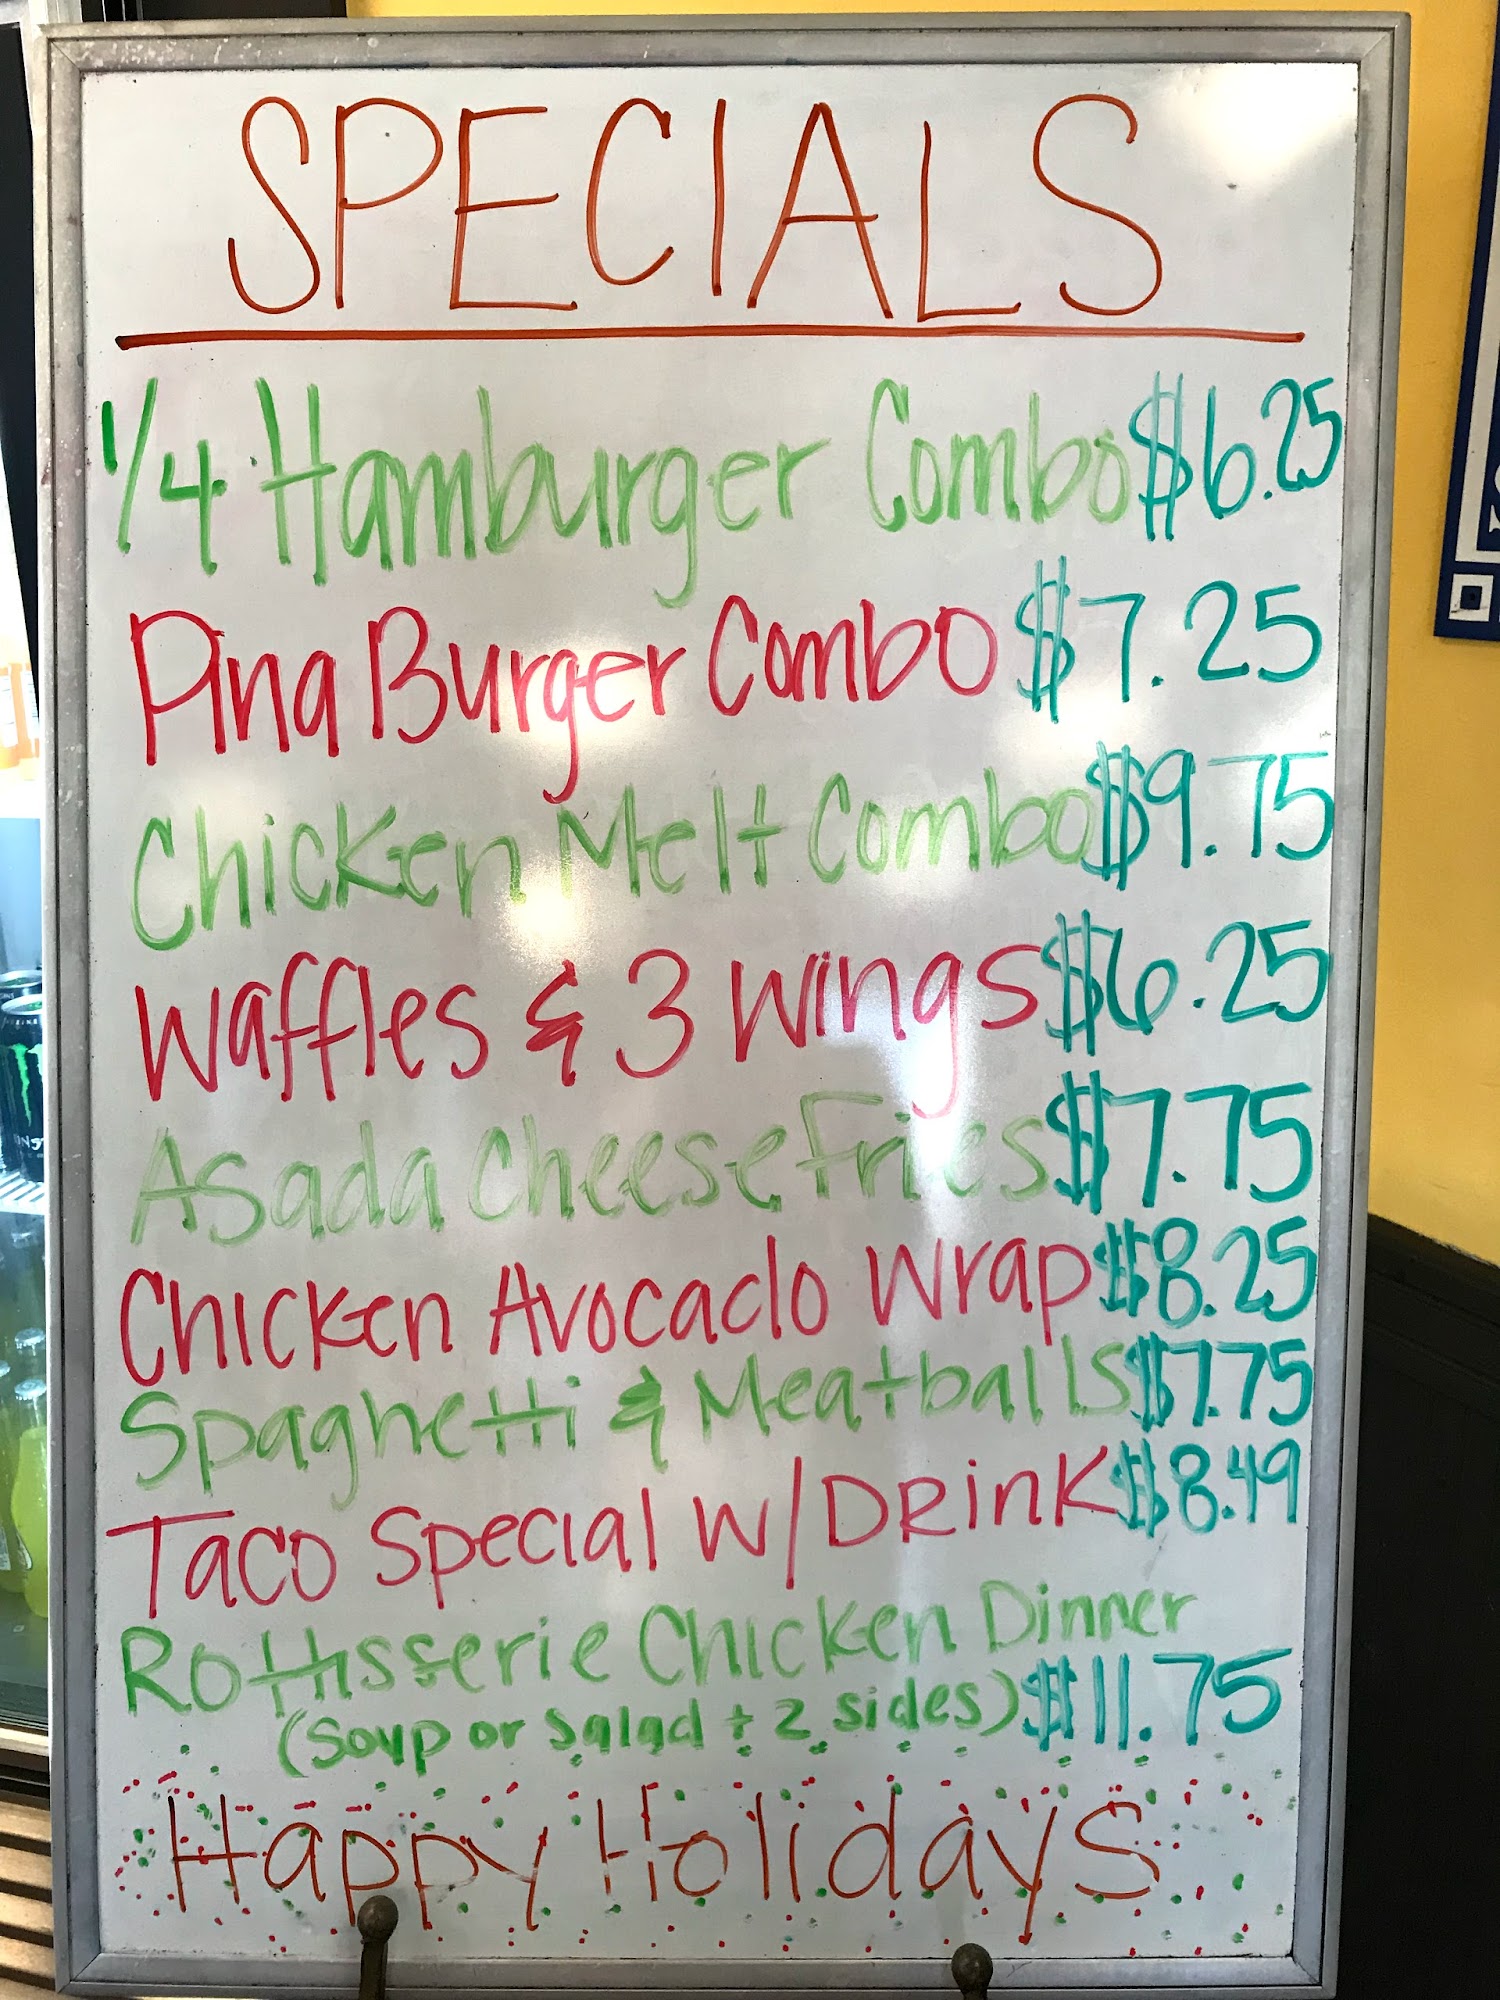 SPECIALS
1/4 Hamburger Combo $6.25
Pina Burger Combo $7.25
Chicken Melt Combo $9.75
Waffles & 3 Wings $6.25
Asada Cheese Fries $7.75
Chicken Avocado Wrap $8.25
Spaghetti & Meatballs $7.75
Taco Special W/DRink $8.49
Rottisserie Chicken Dinner
(Soup or Salad + 2 sides) $11.75
Happy Holidays